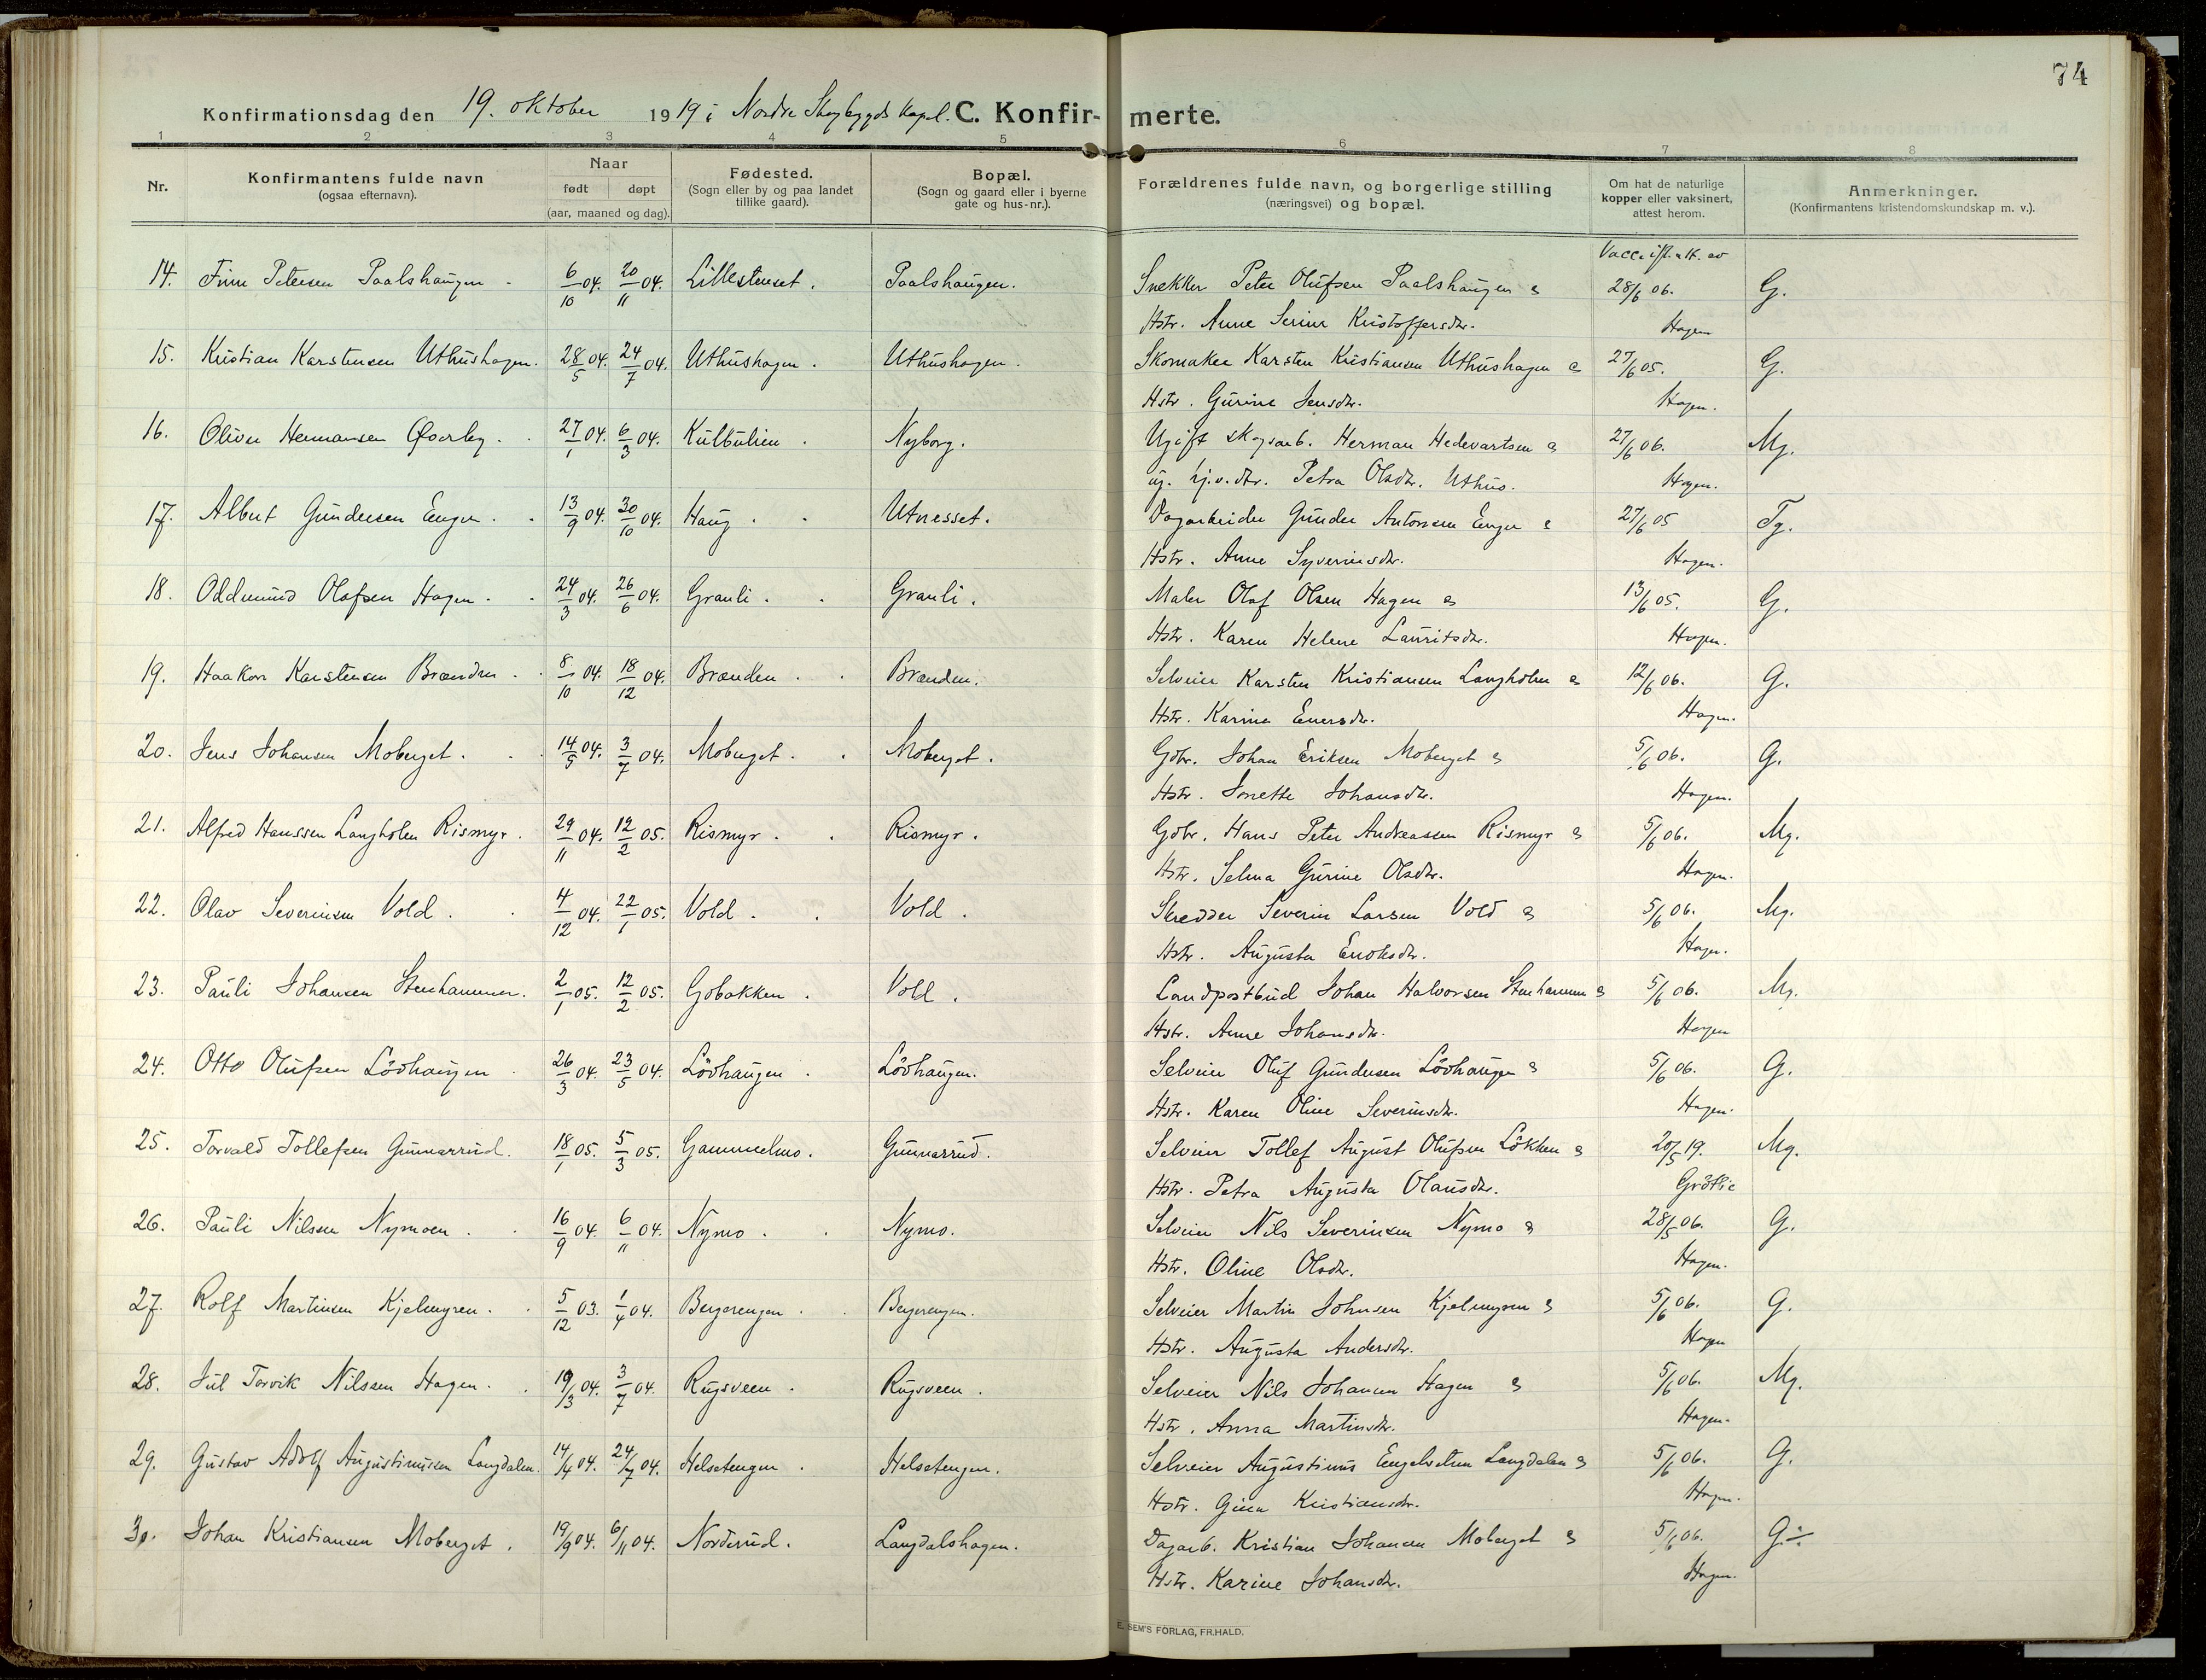 74
Konfirmationsdag den 19. oktober 1919 i Nordre Skogbygds kapel. C. Konfir- merte.
1 2 3 4 5 6 7 8
Nr.
Konfirmantens fulde navn
(ogsaa efternavn).
Naar
født døpt
(aar, maaned og dag).
Fødested.
(Sogn eller by og paa landet
tillike gaard).
Bopæl.
(Sogn og gaard eller i byerne
gate og hus-nr.).
Forældrenes fulde navn, og borgerlige stilling
(næringsvei) og bopæl.
Om hat de naturlige
kopper eller vaksinert,
attest herom.
Anmerkninger.
(Konfirmantens kristendomskundskap m. v.).
Vacc. ifl. att. av
14. Finn Petersen Paalshaugen 6/10 04. 20/11 04. Lillestenset. Paalshaugen. Snekker Peter Olufsen Paalshaugen & 28/6 06. G.
Hstr. Anne Serine Kristoffersdtr. Hagen
15. Kristian Karstensen Uthushagen. 28/5 04. 24/7 04. Uthushagen. Uthushagen. Skomaker Karsten Kristiansen Uthushagen & 27/6 05. G.
Hstr. Gurine Jensdtr. Hagen.
16. Oliver Hermansen Øverby. 27/1 04. 6/3 04. Kulbulien. Nyborg. Ugift skogsarb. Herman Hedevartsen & 27/6 06. Mg.
ug. hj.v.dtr. Petra Olsdtr. Uthus. Hagen.
17. Albert Gundersen Enger. 13/9 04. 30/10 04. Haug. Utnesset. Dagarbeider Gunder Antonsen Enger & 27/6 05 Tg.
Hstr. Anne Syverinsdtr. Hagen.
18. Oddmund Olafsen Hagen. 24/3 04. 26/6 04. Granli. Granli. Maler Olaf Olsen Hagen & 13/6 05. G.
Hstr. Karen Helene Lauritsdtr. Hagen.
19. Haakon Karstensen Brænden. 8/10 04. 18/12 04. Brænden. Brænden. Selveier Karsten Kristiansen Langholen & 12/6 06. G.
Hstr. Karina Enersdtr. Hagen.
20. Jens Johansen Moberget. 14/5 04. 3/7 04. Moberget. Moberget. Gbr. Johan Eriksen Moberget & 5/6 06. G.
Hstr. Jonette Johansdtr. Hagen.
21. Alfred Hanssen Langholen Rismyr. 29/11 04. 12/2 05. Rismyr. Rismyr. Gbr. Hans Peter Andreassen Rismyr & 5/6 06. Mg.
Hstr. Selma Gurine Olsdtr. Hagen.
22. Olav Severinsen Vold. 4/12 04. 22/1 05. Vold. Vold. Skredder Severin Larsen Vold & 5/6 06. Mg.
Hstr. Augusta Enoksdtr. Hagen.
23. Pauli Johansen Stenhammer. 2/1 05. 12/2 05. Gobakken. Vold. Landpostbud Johan Halvorsen Stenhammer & 5/6 06. Mg.
Hstr. Anne Johansdtr. Hagen
24. Otto Olufsen Lövhaugen 26/3 04. 23/5 04. Lövhaugen. Lövhaugen. Selveier Oluf Gundersen Lövhaugen & 5/6 06. G.
Hstr. Karen Oline Severinsdtr. Hagen.
25. Torvald Tollefsen Gunnarrud. 18/1 05. 5/3 05. Gammelmo. Gunnarrud. Selveier Tollef August Olufsen Lökken & 20/5 19. Mg.
Hstr. Petra Augusta Olausdtr. Gröttie
26. Pauli Nilsen Nymoen. 16/9 04. 6/11 04. Nymo. Nymo. Selveier Nils Severinsen Nymo & 28/5 06. G.
Hstr. Oline Olsdtr. Hagen.
27. Rolf Martinsen Kjelmyren. 5/12 03. 1/4 04. Bergerengen. Bergerengen. Selveier Martin Johnsen Kjelmyren & 5/6 06. G.
Hstr. Augusta Andersdtr. Hagen
28. Jul Torvik Nilssen Hagen. 19/3 04. 3/7 04. Rugsveen. Rugsveen. Selveier Nils Johansen Hagen & 5/6 06. Mg.
Hstr. Anna Martinsdtr. Hagen.
29. Gustav Adolf Augustinussen Langdalen. 14/4 04. 24/7 04. Helsetengen. Helsetengen. Selveier Augustinus Engelsetsen Langdalen & 5/6 06. G.
Hstr. Gina Kristiansdtr. Hagen.
30. Johan Kristiansen Moberget. 19/9 04. 6/11 04. Norderud. Langdalshagen. Dagarb. Kristian Johansen Moberget & 5/6 06. G÷
Hstr. Karine Johansdtr. Hagen.
E. SEM'S FORLAG, FR.HALD.